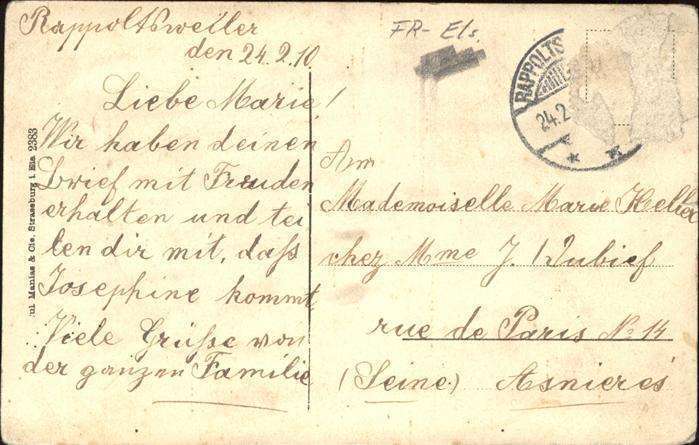 Rappoltsweiler
den 24.2.10
FR- Els.
Liebe Marie!
Wir haben deinen
Brief mit Freuden
erhalten und tei
len dir mit, daß
Josephine kommt
Viele Grüße von
der ganzen Familie
RAPPOLTS
24.2
An
Mademoiselle Marie Heller
chez Mme J. Dubief
rue de Paris No 14
(Seine) Asnieres
ul Manias & Cie, Strassburg i. Els 2383